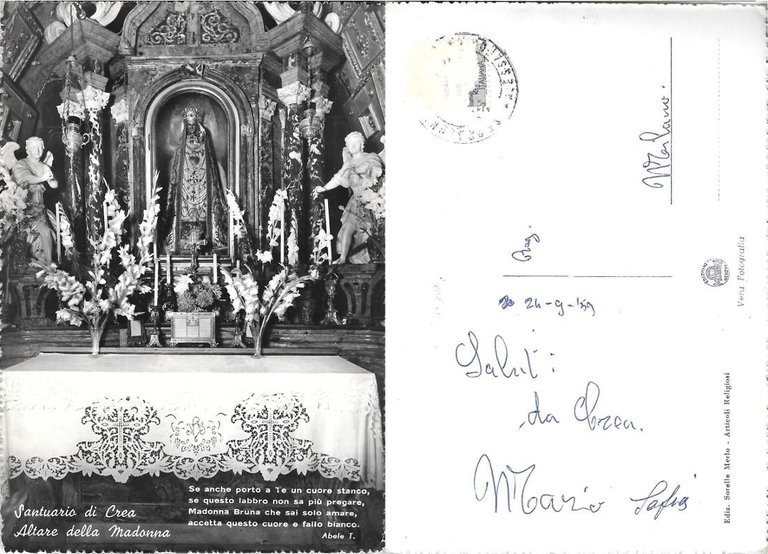 Se anche porto a Te un cuore stanco,
se questo labbro non sa più pregare,
Madonna Bruna che sai solo amare,
accetta questo cuore e fallo bianco.
Abele T.
Santuario di Crea
Altare della Madonna
Milano.
24-9-'59
Saluti
da Crea.
Mario
Vera Fotografia
Ediz. Sorelle Merlo - Articoli Religiosi